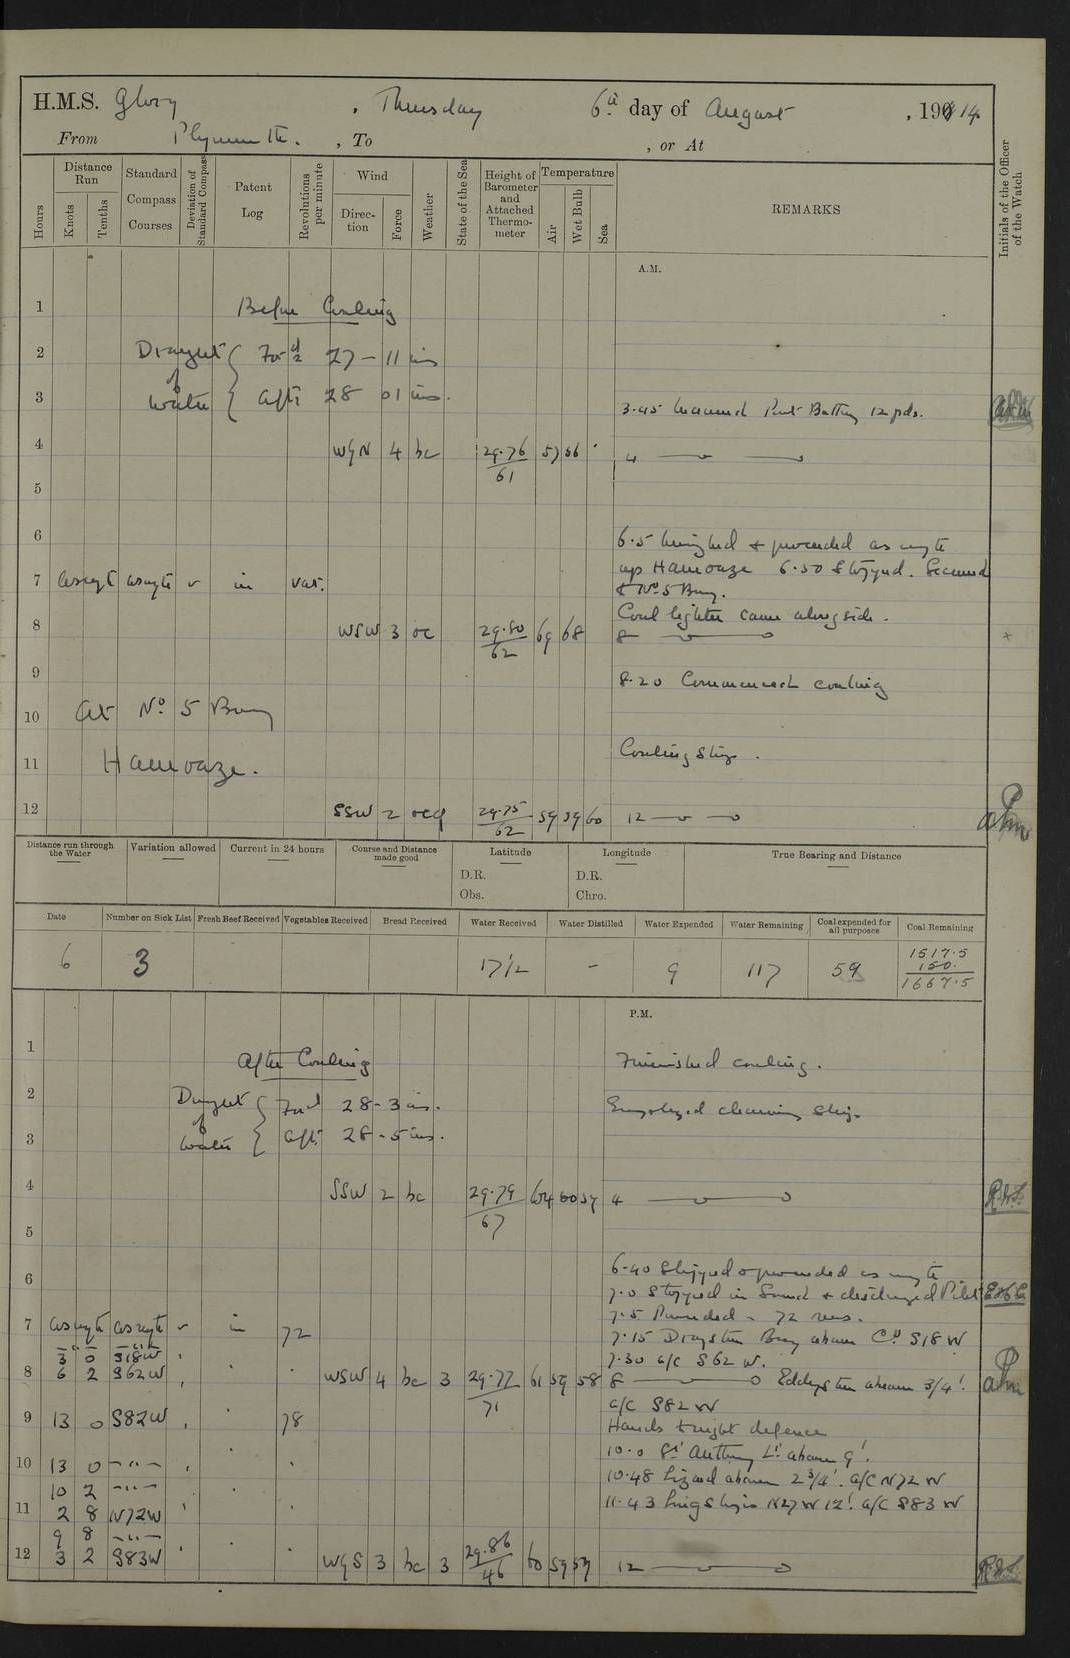 H.M.S. Glory , Thursday 6th day of August , 190 14.
From Plymouth. , To , or At
Hours
Distance Run
Knots
Tenths
Standard Compass Courses
Deviation of Standard Compass
Patent Log
Revolutions per minute
Wind
Direction
Force
Weather
State of the Sea
Height of Barometer and Attached Thermometer
Temperature
Air
Wet Bulb
Sea
REMARKS
Initials of the Officer of the Watch
A.M.
1 Before Coaling
2 Draught Ford 27 - 11 ins
of
3 Water Aft 28 01 ins.
3.45 Manned Port Battery 12 pds.
4 WyN 4 bc 29.76 57 56 4
61
5
6
6.5 Weighed & proceeded as reqte
7 asreqt asreqte in var. up Hamoaze 6.50 Stopped. Secured
to No 5 Buoy.
Coal lighter came alongside.
8 WSW 3 oc 29.80 69 68 8
62
9
8.20 Commenced coaling
10 At No 5 Buoy
11 Hamoaze.
Coaling Ship.
12 SSW 2 ocq 29.75 59 59 60 12
62
Distance run through the Water
Variation allowed
Current in 24 hours
Course and Distance made good
Latitude
D.R.
Obs.
Longitude
D.R.
Chro.
True Bearing and Distance
Date
Number on Sick List
Fresh Beef Received
Vegetables Received
Bread Received
Water Received
Water Distilled
Water Expended
Water Remaining
Coal expended for all purposes
Coal Remaining
6 3 17 1/2 - 9 117 59
1517.5
150.
1667.5
P.M.
1 After Coaling Finished coaling.
2 Draught Ford 28 - 3 ins. Employed cleaning Ship
of
3 Water Aft 28 - 5 ins.
4 SSW 2 bc 29.79 64 60 59 4
67
5
6
6.40 Slipped & proceeded as reqte
7.0 Stopped in Sound & discharged Pilot
7.5 Proceeded - 72 revs.
7 asreqte asreqte in 72 7.15 Draystone Buoy abeam Co S18W
3 0 S18W 7.30 a/c S62W.
8 6 2 S62W WSW 4 bc 3 29.77 61 59 58 8 Eddystone abeam 3/4'.
71
a/c S82W
9 13 0 S82W 78 Hands to night defence
10.0 St Anthony Lt abeam 9'.
10 13 0 -"- 10.48 Lizard abeam 2 3/4'. a/c N72W
10 2 -"-
11 2 8 N72W 11.43 Longships N27W 12'. a/c S83W
9 8 -"-
12 3 2 S83W WyS 3 bc 3 29.86 60 59 59 12
46